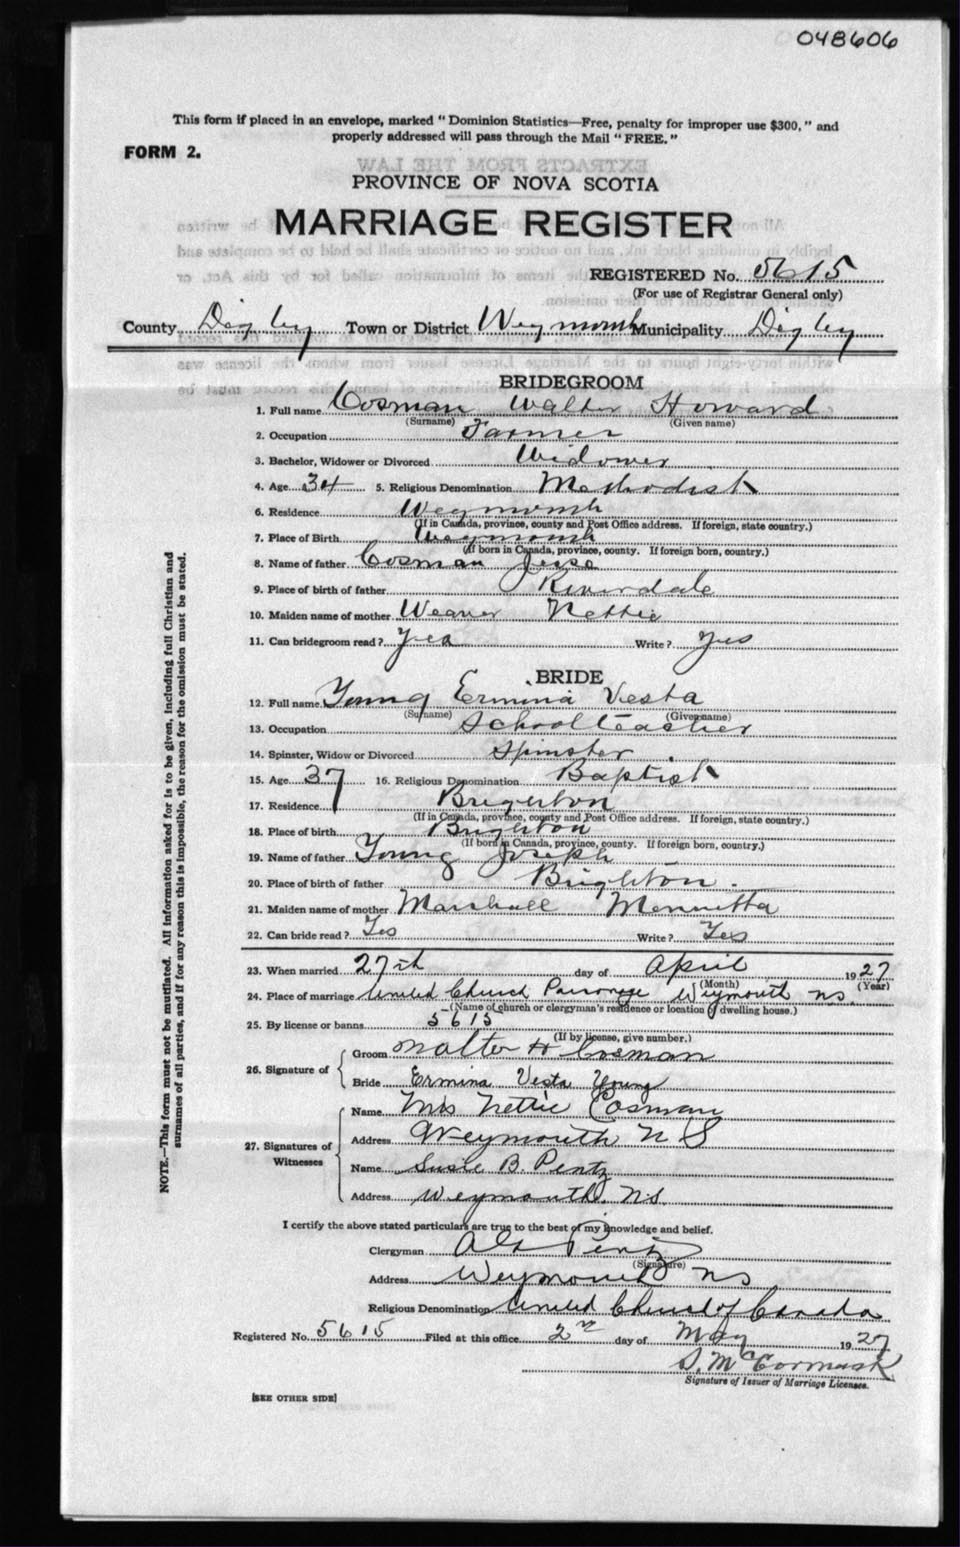 048606
This form if placed in an envelope, marked " Dominion Statistics—Free, penalty for improper use $300, " and
properly addressed will pass through the Mail " FREE. "
FORM 2.
EXTRACTS FROM THE LAW
PROVINCE OF NOVA SCOTIA
MARRIAGE REGISTER
REGISTERED No. 5615
(For use of Registrar General only)
County Digby Town or District Weymouth Municipality Digby
BRIDEGROOM
1. Full name Cosman Walter Howard
(Surname) (Given name)
2. Occupation Farmer
3. Bachelor, Widower or Divorced Widower
4. Age 34 5. Religious Denomination Methodist
6. Residence Weymouth
(If in Canada, province, county and Post Office address. If foreign, state country.)
7. Place of Birth Weymouth
(If born in Canada, province, county. If foreign born, country.)
8. Name of father Cosman Jesse
9. Place of birth of father Riverdale
10. Maiden name of mother Weaver Nettie
11. Can bridegroom read? Yes Write? Yes
BRIDE
12. Full name Young Ermina Vesta
(Surname) (Given name)
13. Occupation School teacher
14. Spinster, Widow or Divorced Spinster
15. Age 37 16. Religious Denomination Baptist
17. Residence Brighton
(If in Canada, province, county and Post Office address. If foreign, state country.)
18. Place of birth Brighton
(If born in Canada, province, county. If foreign born, country.)
19. Name of father Young Joseph
20. Place of birth of father Brighton.
21. Maiden name of mother Marshall Menretta
22. Can bride read? Yes Write? Yes
23. When married 27th day of April 1927
(Month) (Year)
24. Place of marriage United Church Parsonage Weymouth NS
(Name of church or clergyman's residence or location of dwelling house.)
25. By license or banns 5615
(If by license, give number.)
26. Signature of
Groom Walter H Cosman
Bride Ermina Vesta Young
27. Signatures of Witnesses
Name Mrs Nettie Cosman
Address Weymouth N S
Name Susie B. Pentz
Address Weymouth. NS.
I certify the above stated particulars are true to the best of my knowledge and belief.
Clergyman Pentz
(Signature)
Address Weymouth NS
Religious Denomination United Church of Canada
Registered No. 5615 Filed at this office 2nd day of May 1927
S. McCormack
Signature of Issuer of Marriage Licenses.
[SEE OTHER SIDE]
NOTE.—This form must not be mutilated. All information asked for is to be given, including full Christian and
surnames of all parties, and if for any reason this is impossible, the reason for the omission must be stated.